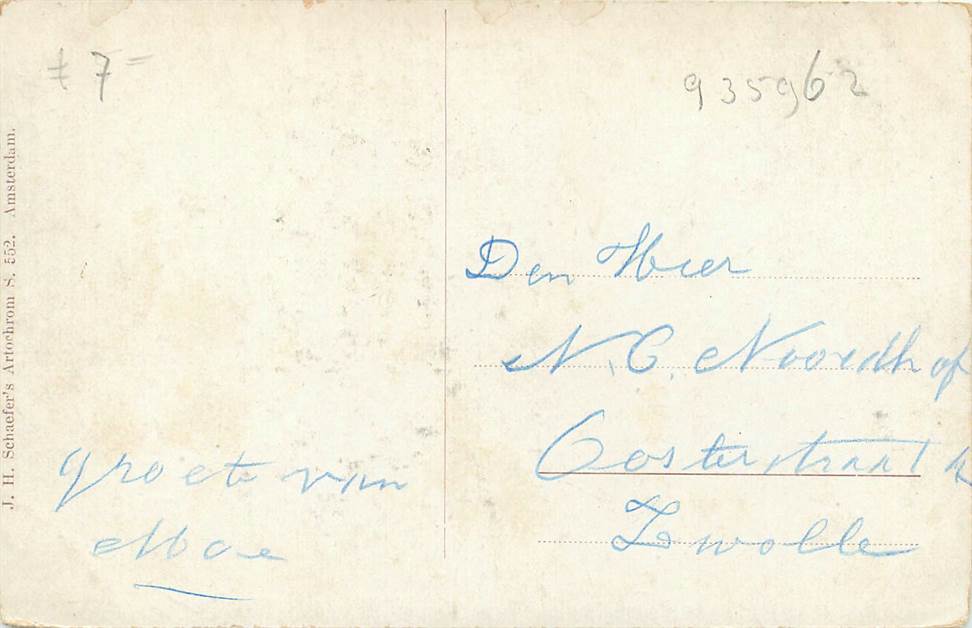 7=
935962
J. H. Schaefer's Artochrom S. 552. Amsterdam.
Den Heer
N. C. Noordhof
Oosterstraat
Zwolle
groete van
Moe